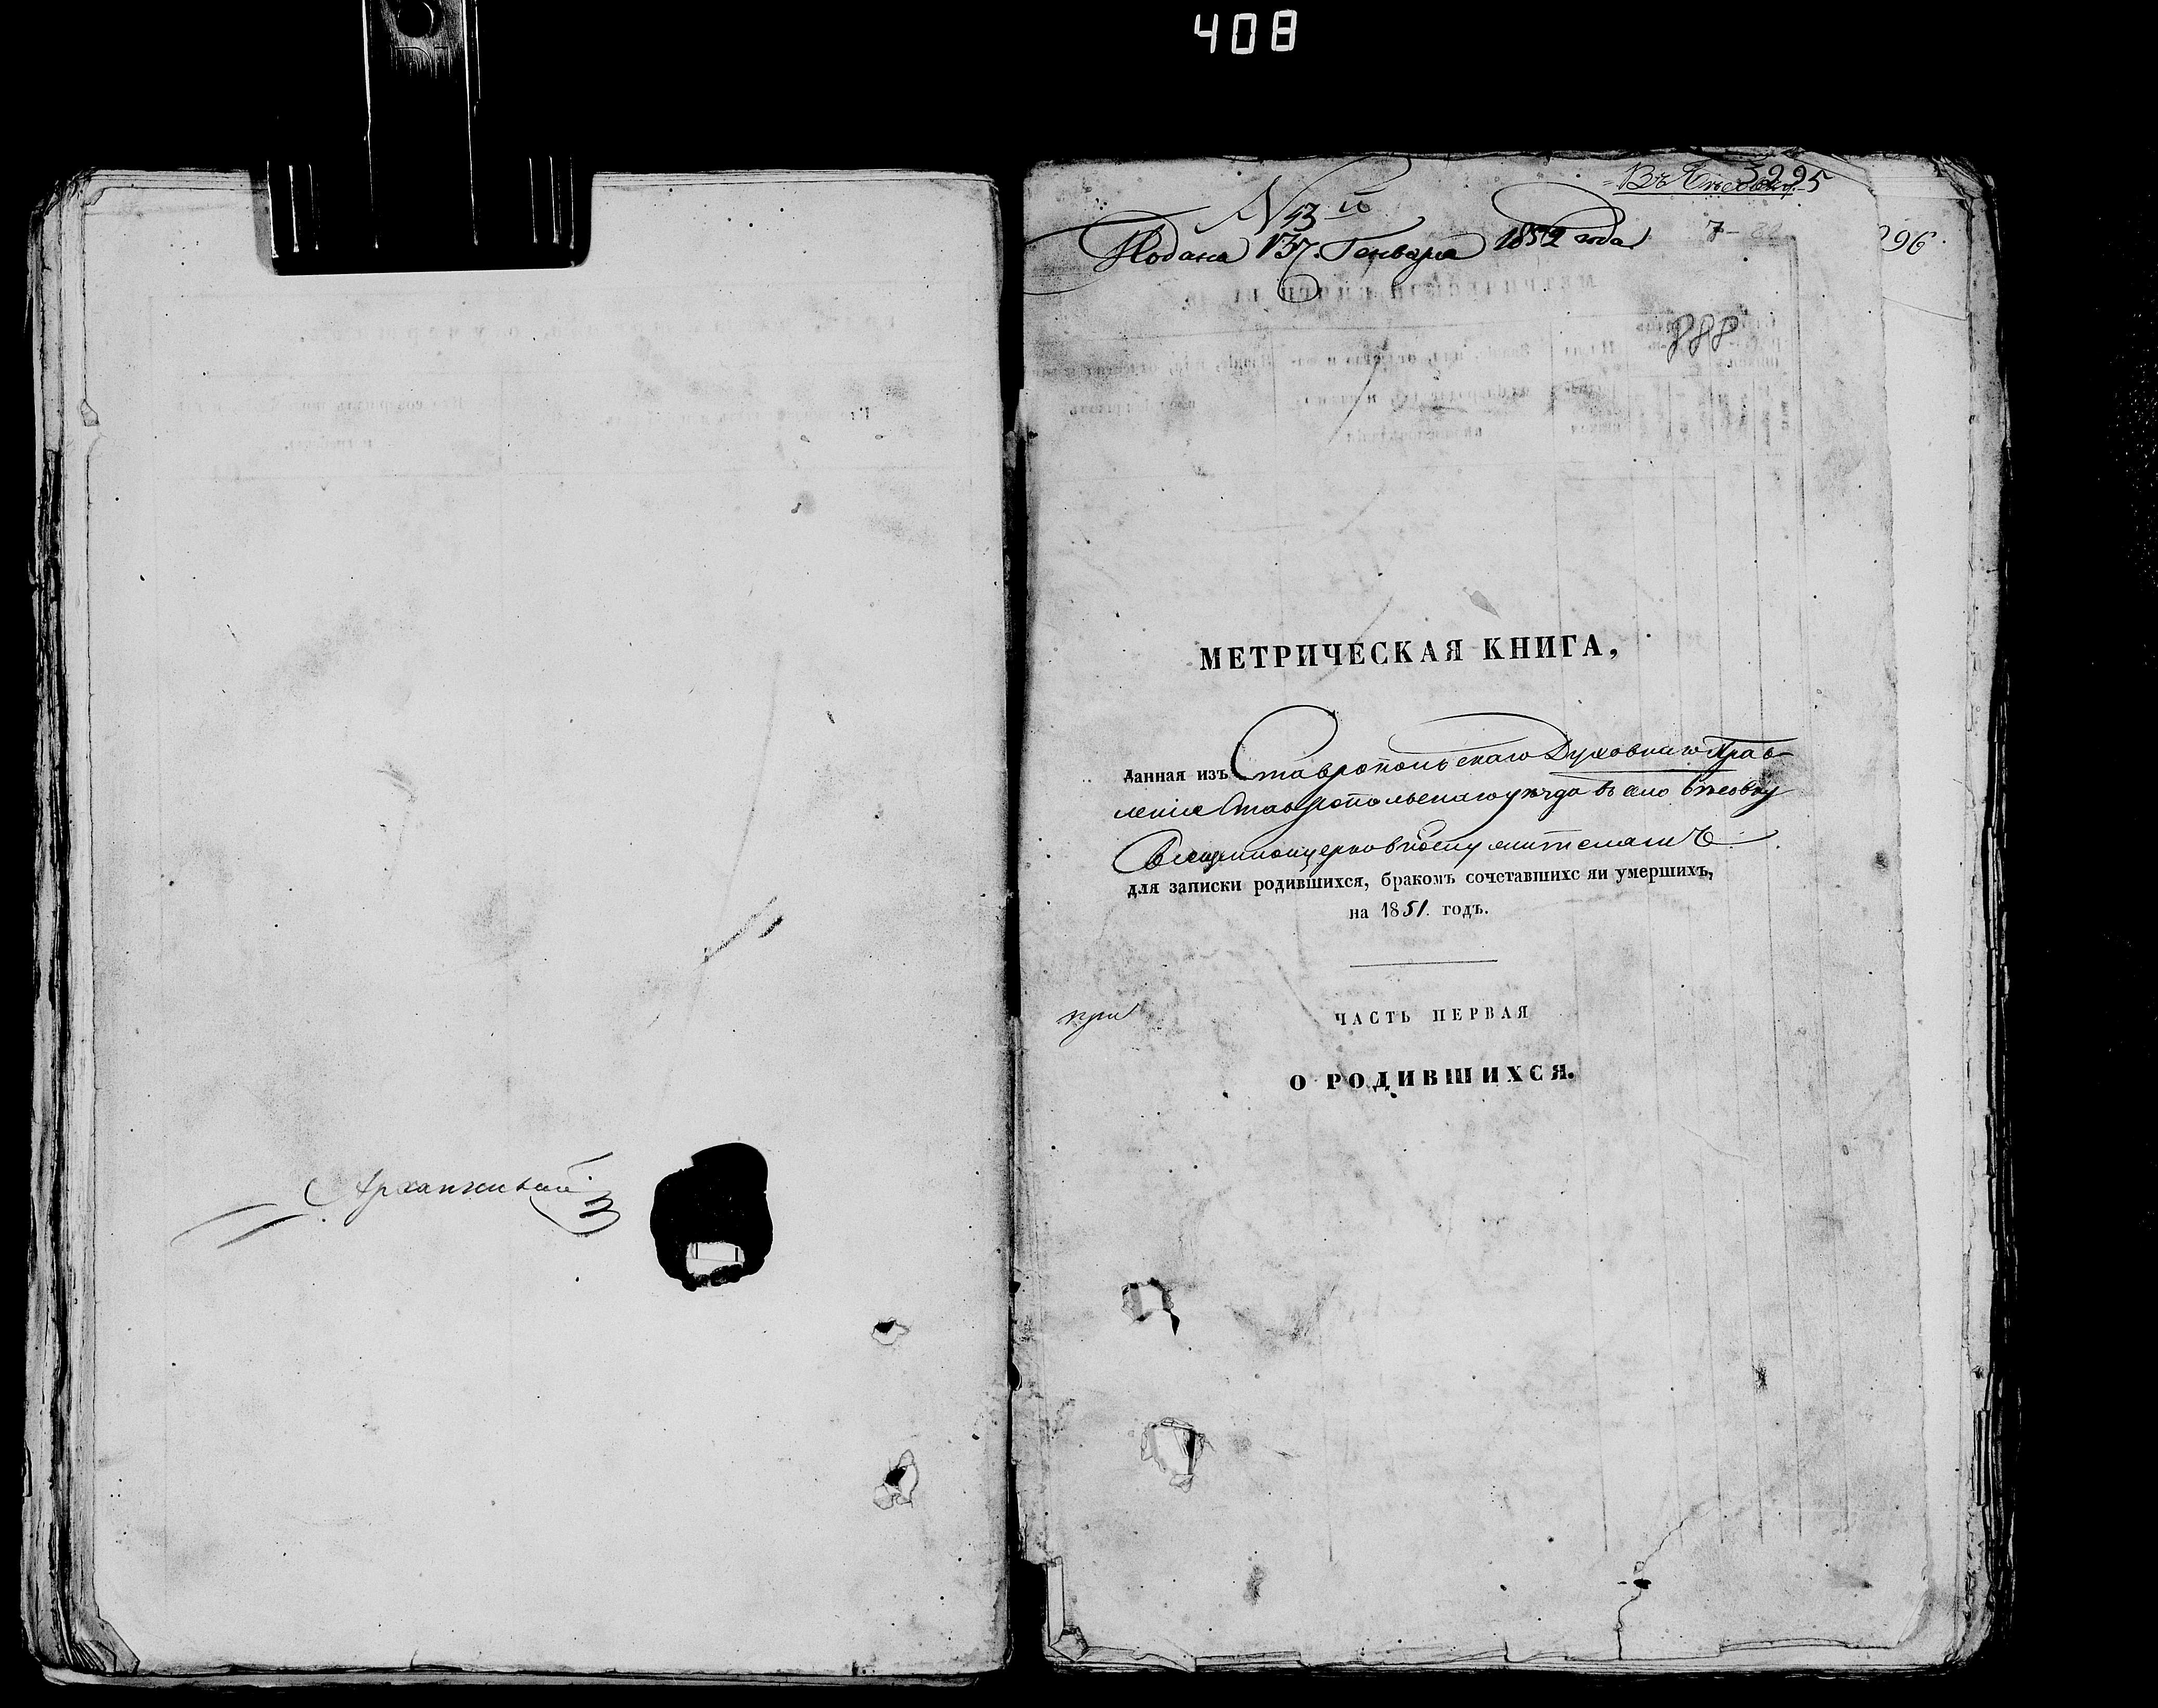 408
Архангельскій
3295
N 43 й
Подана 137. Генваря 1852 года
7-
296
888
МЕТРИЧЕСКАЯ КНИГА,
данная изъ Ставропольскаго Духовнаго Прав
ленія Ставропольскаго уѣзда въ село
священноцерковнослужителямъ
для записки родившихся, бракомъ сочетавшихс яи умершихъ,
на 1851. годъ.
при
ЧАСТЬ ПЕРВАЯ
О РОДИВШИХСЯ.